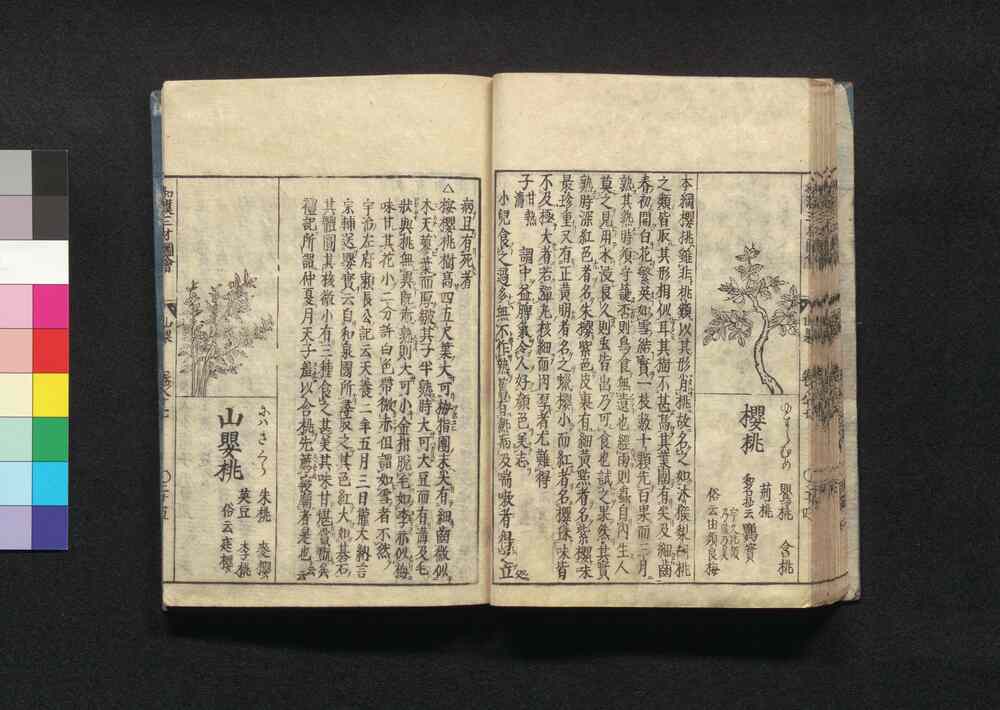 櫻桃
鸎桃 含桃
荊桃
本綱櫻桃雖非桃類以其形肖桃故名之如沐猴梨胡桃
之類皆取其形相似耳其樹不甚高其葉團有尖及細齒
春初開白花繁英如雪結實一枝數十顆先百果而三月
熟其熟時須守護否則鳥食無遺也經雨則蟲自内生人
莫之見用水浸良久則虫皆出乃可食也試之果然其實
熟時深紅色者名朱櫻紫色皮裏有細黄㸃者名紫櫻味
最珍重又有正黄明者名之蠟櫻小而紅者名櫻珠味皆
不及極大者若彈丸核細而肉厚者尤難得
子 甘熱 調中益脾氣令人好顔色美志
小兒食之過多無不作熱
病且有死者
△按櫻桃樹高四五尺葉大可拇指團末尖有細齒微似
木天蓼葉而耎皺其子半熟時大可大豆而有溝及毛
狀與桃無異既而熟則大可小金柑脱毛如李亦似梅
味甘其花小二分許白色帶微赤但謂如雪者不然
宇治左府賴長公記云天養二年五月三日權大納言
宗輔送櫻實云自和泉國所
其體圓其核微小有三種食之其美其味甘
禮記所謂仲夏月天子羞以含桃先薦寢廟者是也
山嬰桃
朱桃 麥櫻
英豆 李桃
俗云庭櫻